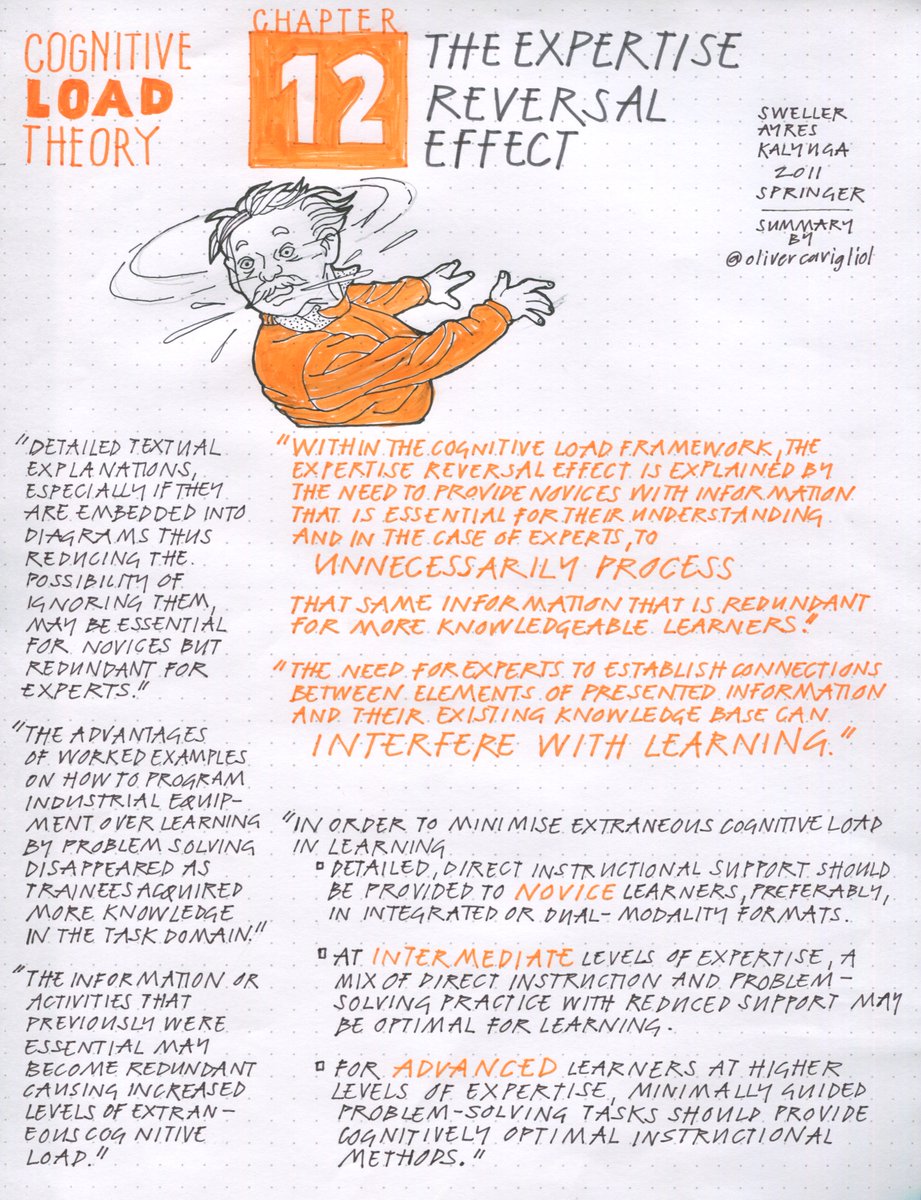 COGNITIVE
LOAD
THEORY
CHAPTER
12
THE EXPERTISE
REVERSAL
EFFECT
SWELLER
AYRES
KALYUGA
2011
SPRINGER
SUMMARY
BY
@olivercavigliol
"DETAILED TEXTUAL
EXPLANATIONS,
ESPECIALLY IF THEY
ARE EMBEDDED INTO
DIAGRAMS THUS
REDUCING THE
POSSIBILITY OF
IGNORING THEM,
MAY BE ESSENTIAL
FOR NOVICES BUT
REDUNDANT FOR
EXPERTS."
"THE ADVANTAGES
OF WORKED EXAMPLES
ON HOW TO PROGRAM
INDUSTRIAL EQUIP-
MENT OVER LEARNING
BY PROBLEM SOLVING
DISAPPEARED AS
TRAINEES ACQUIRED
MORE KNOWLEDGE
IN THE TASK DOMAIN."
"THE INFORMATION OR
ACTIVITIES THAT
PREVIOUSLY WERE
ESSENTIAL MAY
BECOME REDUNDANT
CAUSING INCREASED
LEVELS OF EXTRAN-
EOUS COGNITIVE
LOAD."
"WITHIN THE COGNITIVE LOAD FRAMEWORK, THE
EXPERTISE REVERSAL EFFECT IS EXPLAINED BY
THE NEED TO PROVIDE NOVICES WITH INFORMATION
THAT IS ESSENTIAL FOR THEIR UNDERSTANDING
AND IN THE CASE OF EXPERTS, TO
UNNECESSARILY PROCESS
THAT SAME INFORMATION THAT IS REDUNDANT
FOR MORE KNOWLEDGEABLE LEARNERS."
"THE NEED FOR EXPERTS TO ESTABLISH CONNECTIONS
BETWEEN ELEMENTS OF PRESENTED INFORMATION
AND THEIR EXISTING KNOWLEDGE BASE CAN
INTERFERE WITH LEARNING."
"IN ORDER TO MINIMISE EXTRANEOUS COGNITIVE LOAD
IN LEARNING
▫ DETAILED, DIRECT INSTRUCTIONAL SUPPORT SHOULD
BE PROVIDED TO NOVICE LEARNERS, PREFERABLY,
IN INTEGRATED OR DUAL-MODALITY FORMATS.
▫ AT INTERMEDIATE LEVELS OF EXPERTISE, A
MIX OF DIRECT INSTRUCTION AND PROBLEM-
SOLVING PRACTICE WITH REDUCED SUPPORT MAY
BE OPTIMAL FOR LEARNING.
▫ FOR ADVANCED LEARNERS AT HIGHER
LEVELS OF EXPERTISE, MINIMALLY GUIDED
PROBLEM-SOLVING TASKS SHOULD PROVIDE
COGNITIVELY OPTIMAL INSTRUCTIONAL
METHODS."